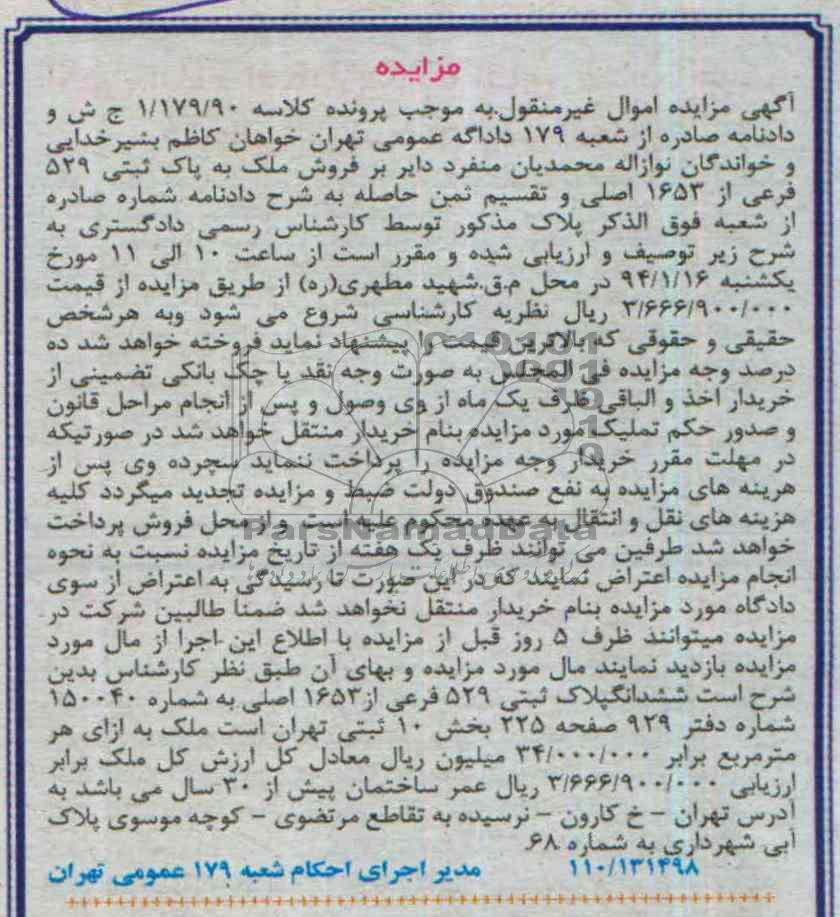 مزایده
آگهی مزایده اموال غیرمنقول.به موجب پرونده کلاسه ۱/۱۷۹/۹۰ ج ش و
دادنامه صادره از شعبه ۱۷۹ داداگه عمومی تهران خواهان کاظم بشیرخدایی
و خواندگان نوازاله محمدیان منفرد دایر بر فروش ملک به پاک ثبتی ۵۲۹
فرعی از ۱۶۵۳ اصلی و تقسیم ثمن حاصله به شرح دادنامه شماره صادره
از شعبه فوق الذکر پلاک مذکور توسط کارشناس رسمی دادگستری به
شرح زیر توصیف و ارزیابی شده و مقرر است از ساعت ۱۰ الی ۱۱ مورخ
یکشنبه ۹۴/۱/۱۶ در محل م.ق.شهید مطهری(ره) از طریق مزایده از قیمت
۳/۶۶۶/۹۰۰/۰۰۰ ریال نظریه کارشناسی شروع می شود وبه هرشخص
حقیقی و حقوقی که بالاترین قیمت را پیشنهاد نماید فروخته خواهد شد ده
درصد وجه مزایده فی المجلس به صورت وجه نقد یا چک بانکی تضمینی از
خریدار اخذ و الباقی ظرف یک ماه از وی وصول و پس از انجام مراحل قانون
و صدور حکم تملیک مورد مزایده بنام خریدار منتقل خواهد شد در صورتیکه
در مهلت مقرر خریدار وجه مزایده را پرداخت ننماید سجرده وی پس از
هرینه های مزایده به نفع صندوق دولت ضبط و مزایده تجدید میگردد کلیه
هزینه های نقل و انتقال به عهده محکوم علیه است و از محل فروش پرداخت
خواهد شد طرفین می توانند ظرف یک هفته از تاریخ مزایده نسبت به نحوه
انجام مزایده اعتراض نمایند که در این صورت تا رسیدگی به اعتراض از سوی
دادگاه مورد مزایده بنام خریدار منتقل نخواهد شد ضمنا طالبین شرکت در
مزایده میتوانند ظرف ۵ روز قبل از مزایده با اطلاع این اجرا از مال مورد
مزایده بازدید نمایند مال مورد مزایده و بهای آن طبق نظر کارشناس بدین
شرح است ششدانگپلاک ثبتی ۵۲۹ فرعی از۱۶۵۳ اصلی به شماره ۱۵۰۰۴۰
شماره دفتر ۹۲۹ صفحه ۲۲۵ بخش ۱۰ ثبتی تهران است ملک به ازای هر
مترمربع برابر ۳۴/۰۰۰/۰۰۰ میلیون ریال معادل کل ارزش کل ملک برابر
ارزیابی ۳/۶۶۶/۹۰۰/۰۰۰ ریال عمر ساختمان پیش از ۳۰ سال می باشد به
آدرس تهران – خ کارون – نرسیده به تقاطع مرتضوی – کوچه موسوی پلاک
آبی شهرداری به شماره ۶۸.
۱۱۰/۱۳۱۴۹۸ مدیر اجرای احکام شعبه ۱۷۹ عمومی تهران
ParsNamadData